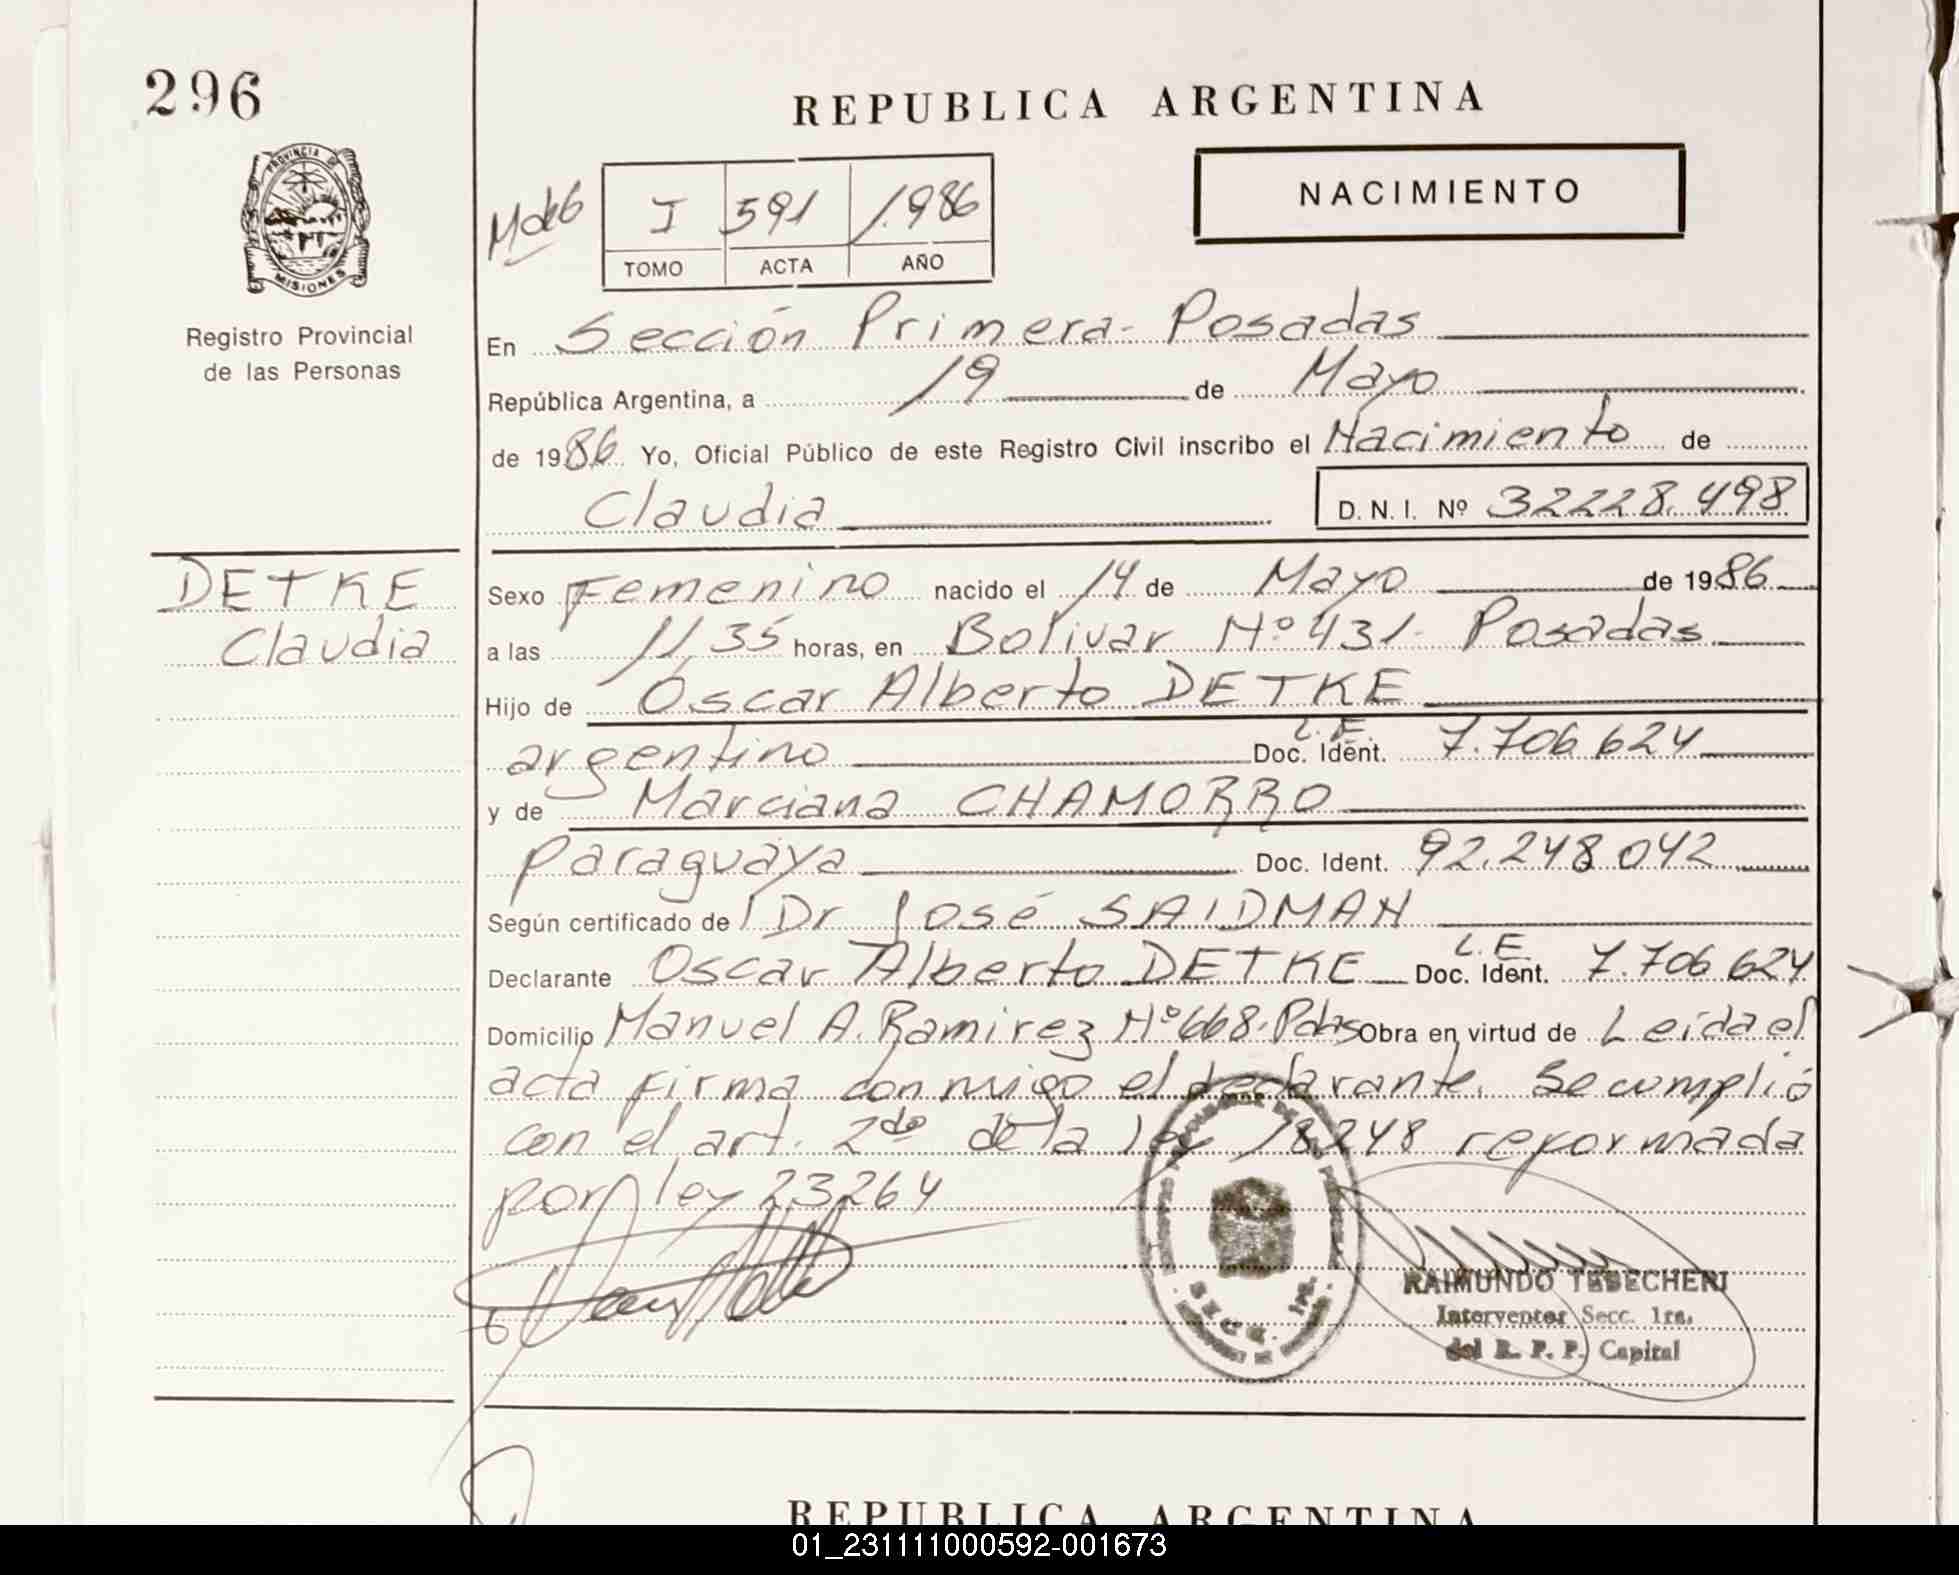 296
REPUBLICA ARGENTINA
NACIMIENTO
I 591 1.986
TOMO ACTA AÑO
PROVINCIA DE
MISIONES
Registro Provincial
de las Personas
En Sección Primera - Posadas
República Argentina, a 19 de Mayo
de 1986 Yo, Oficial Público de este Registro Civil inscribo el Nacimiento de
Claudia D. N. I. Nº 32228.498
DETKE
Claudia
Sexo Femenino nacido el 14 de Mayo de 1986
a las 11 35 horas, en Bolivar Nº 431- Posadas
Hijo de Oscar Alberto DETKE
argentino L.E. Doc. Ident. 7.706.624
y de Marciana CHAMORRO
paraguaya Doc. Ident. 92.248.042
Según certificado de Dr José SAIDMAN
Declarante Oscar Alberto DETKE L.E. Doc. Ident. 7.706.624
Domicilio Manuel A. Ramirez Nº 668. Pdas Obra en virtud de Leída el
acta firma conmigo el declarante. Se cumplió
con el art. 2do de la ley 18248 reformada
por ley 23264
SECC. 1ra.
RAIMUNDO TEBECHERI
Interventor Secc. 1ra.
del R. P. P. Capital
REPUBLICA ARGENTINA
01_231111000592-001673